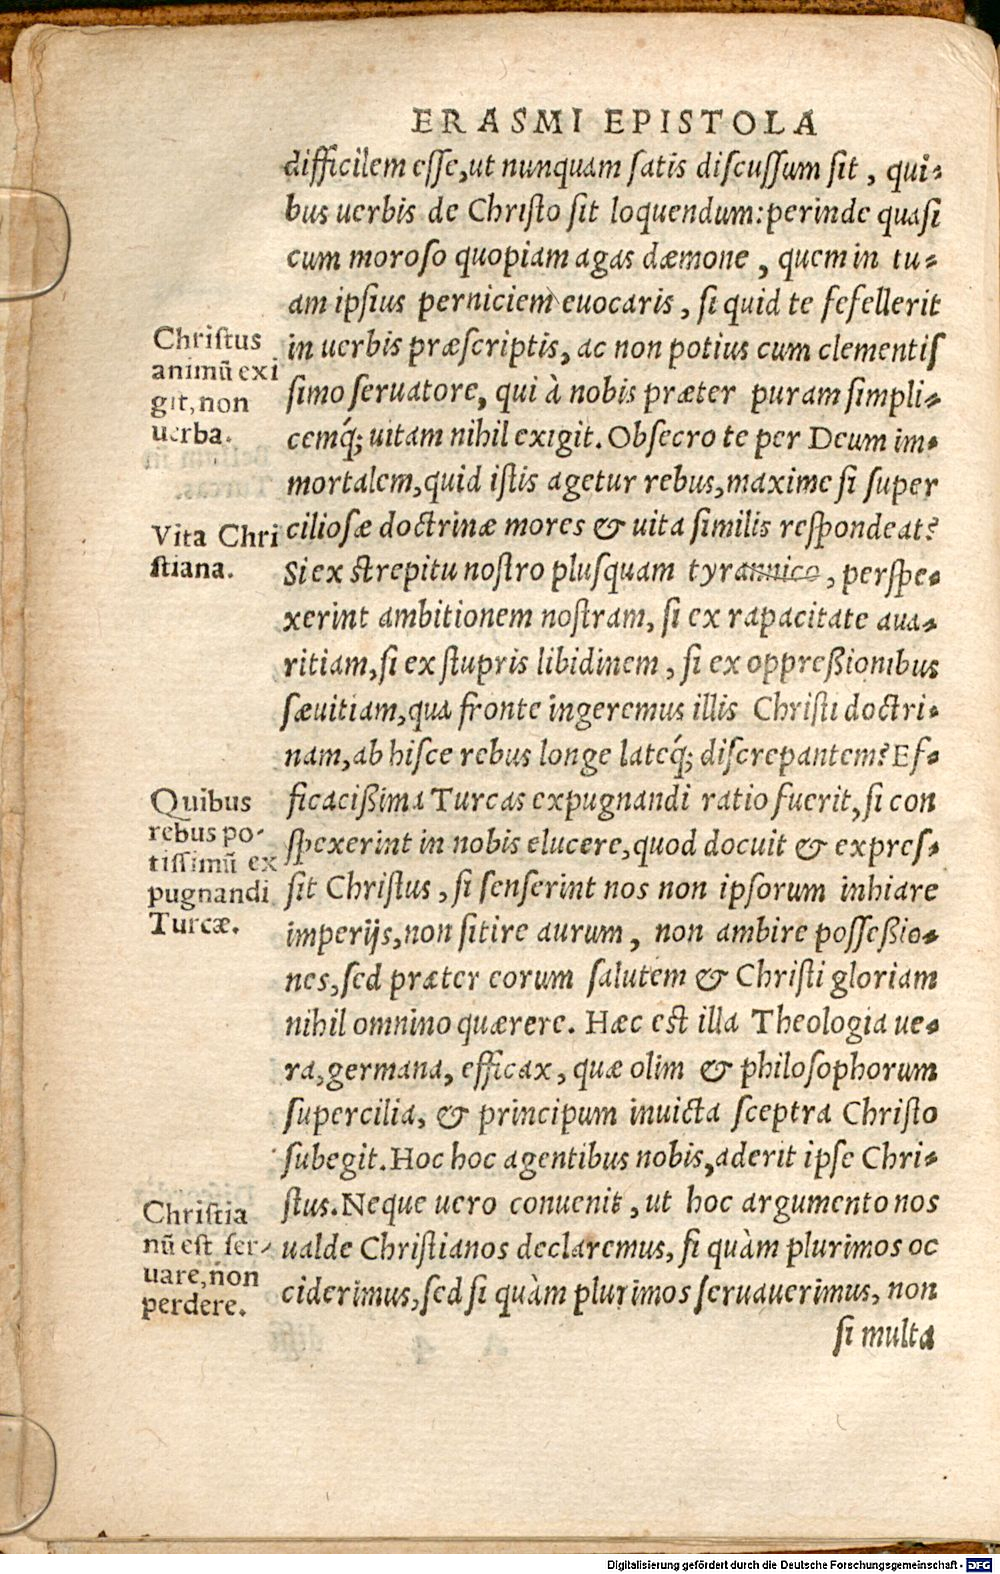 ERASMI EPISTOLA
difficilem eſſe, ut nunquam ſatis diſcuſſum ſit, qui-
bus uerbis de Chriſto ſit loquendum: perinde quaſi
cum moroſo quopiam agas dæmone, quem in tu-
am ipſius perniciem euocaris, ſi quid te fefellerit
in uerbis præſcriptis, ac non potius cum clementiſ
ſimo ſeruatore, qui à nobis præter puram ſimpli-
cemq́; uitam nihil exigit. Obſecro te per Deum im-
mortalem, quid iſtis agetur rebus, maxime ſi ſuper
cilioſæ doctrinæ mores & uita ſimilis reſpondeat?
Si ex ſtrepitu noſtro pluſquam tyrannico, perſpe-
xerint ambitionem noſtram, ſi ex rapacitate aua-
ritiam, ſi ex ſtupris libidinem, ſi ex oppreßionibus
ſæuitiam, qua fronte ingeremus illis Chriſti doctri-
nam, ab hiſce rebus longe lateq́; diſcrepantem? Ef-
ficacißima Turcas expugnandi ratio fuerit, ſi con
ſpexerint in nobis elucere, quod docuit & expreſ-
ſit Chriſtus, ſi ſenſerint nos non ipſorum inhiare
imperijs, non ſitire aurum, non ambire poſſeßio-
nes, ſed præter eorum ſalutem & Chriſti gloriam
nihil omnino quærere. Hæc eſt illa Theologia ue-
ra, germana, efficax, quæ olim & philoſophorum
ſupercilia, & principum inuicta ſceptra Chriſto
ſubegit. Hoc hoc agentibus nobis, aderit ipſe Chri-
ſtus. Neque uero conuenit, ut hoc argumento nos
ualde Chriſtianos declaremus, ſi quàm plurimos oc
ciderimus, ſed ſi quàm plurimos ſeruauerimus, non
ſi multa
Chriſtus
animū exi
git, non
uerba.
Vita Chri
ſtiana.
Quibus
rebus po-
tiſſimū ex
pugnandi
Turcæ.
Chriſtia
nū eſt ſer-
uare, non
perdere.
Digitalisierung gefördert durch die Deutsche Forschungsgemeinschaft - DFG